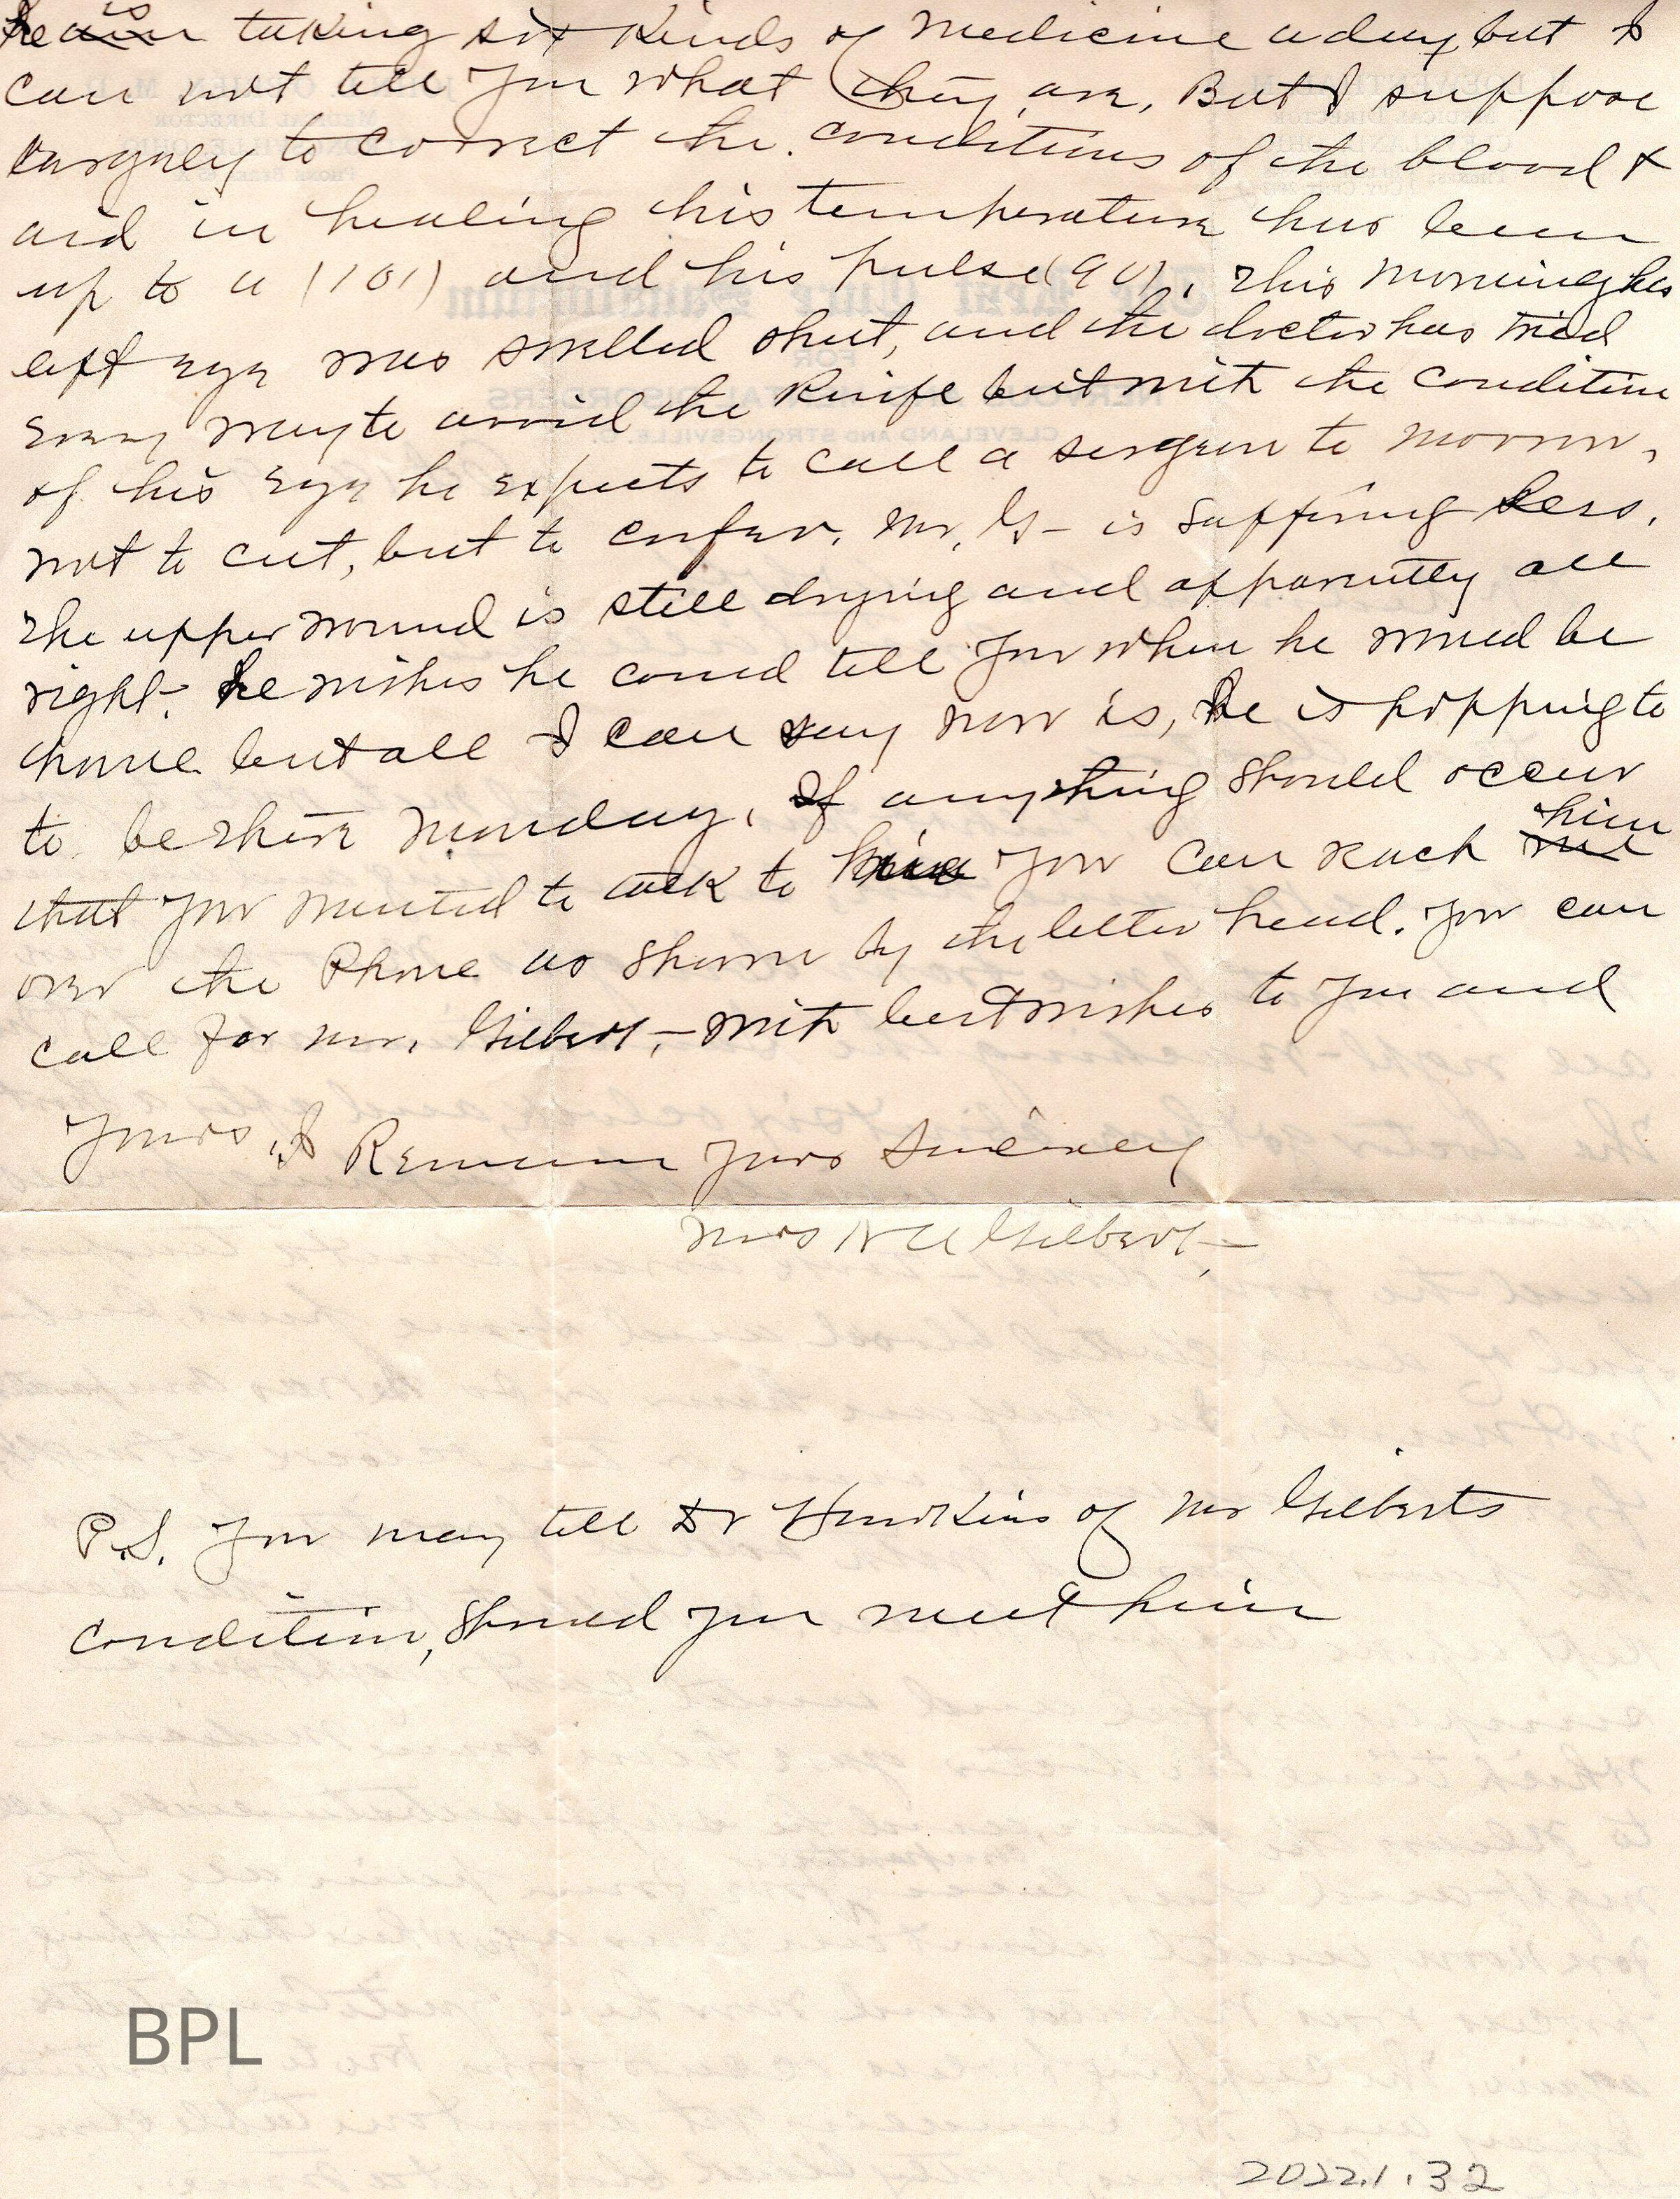 he is taking six kinds of medicine a day, but I
can not tell you what they are, But I suppose
largely to correct the conditions of the blood &
aid in healing his temperature has been
up to a (101) and his pulse (90), This morning his
left eye was swelled shut, and the docter has tried
every way to avoid the knife but with the condition
of his eye he expects to call a surgeon to morrow,
not to cut, but to confer. Mr, G- is suffering less.
The upper wound is still drying and apparently all
right. he wishes he could tell you when he would be
home but all I can say now is, he is hopping to
to be there Monday, If anything should occur
that you wanted to talk to him you can reach him
over the Phone as shown by the letter head. You can
call for Mr. Gilbert, - with best wishes to you and
Yours, I Remain Yours Sincerely
Mrs Gilbert,
P.S. You may tell Dr Hawkins of Mr Gilberts
condition, should you meet him
BPL
2022.1.32